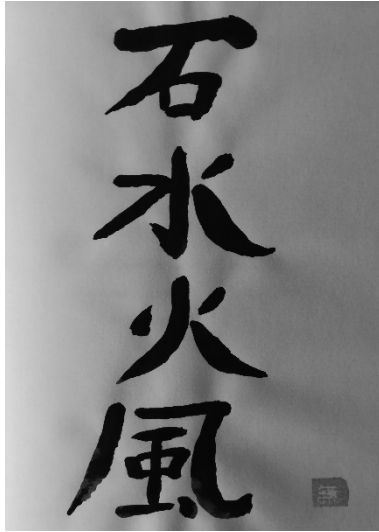 石水火風